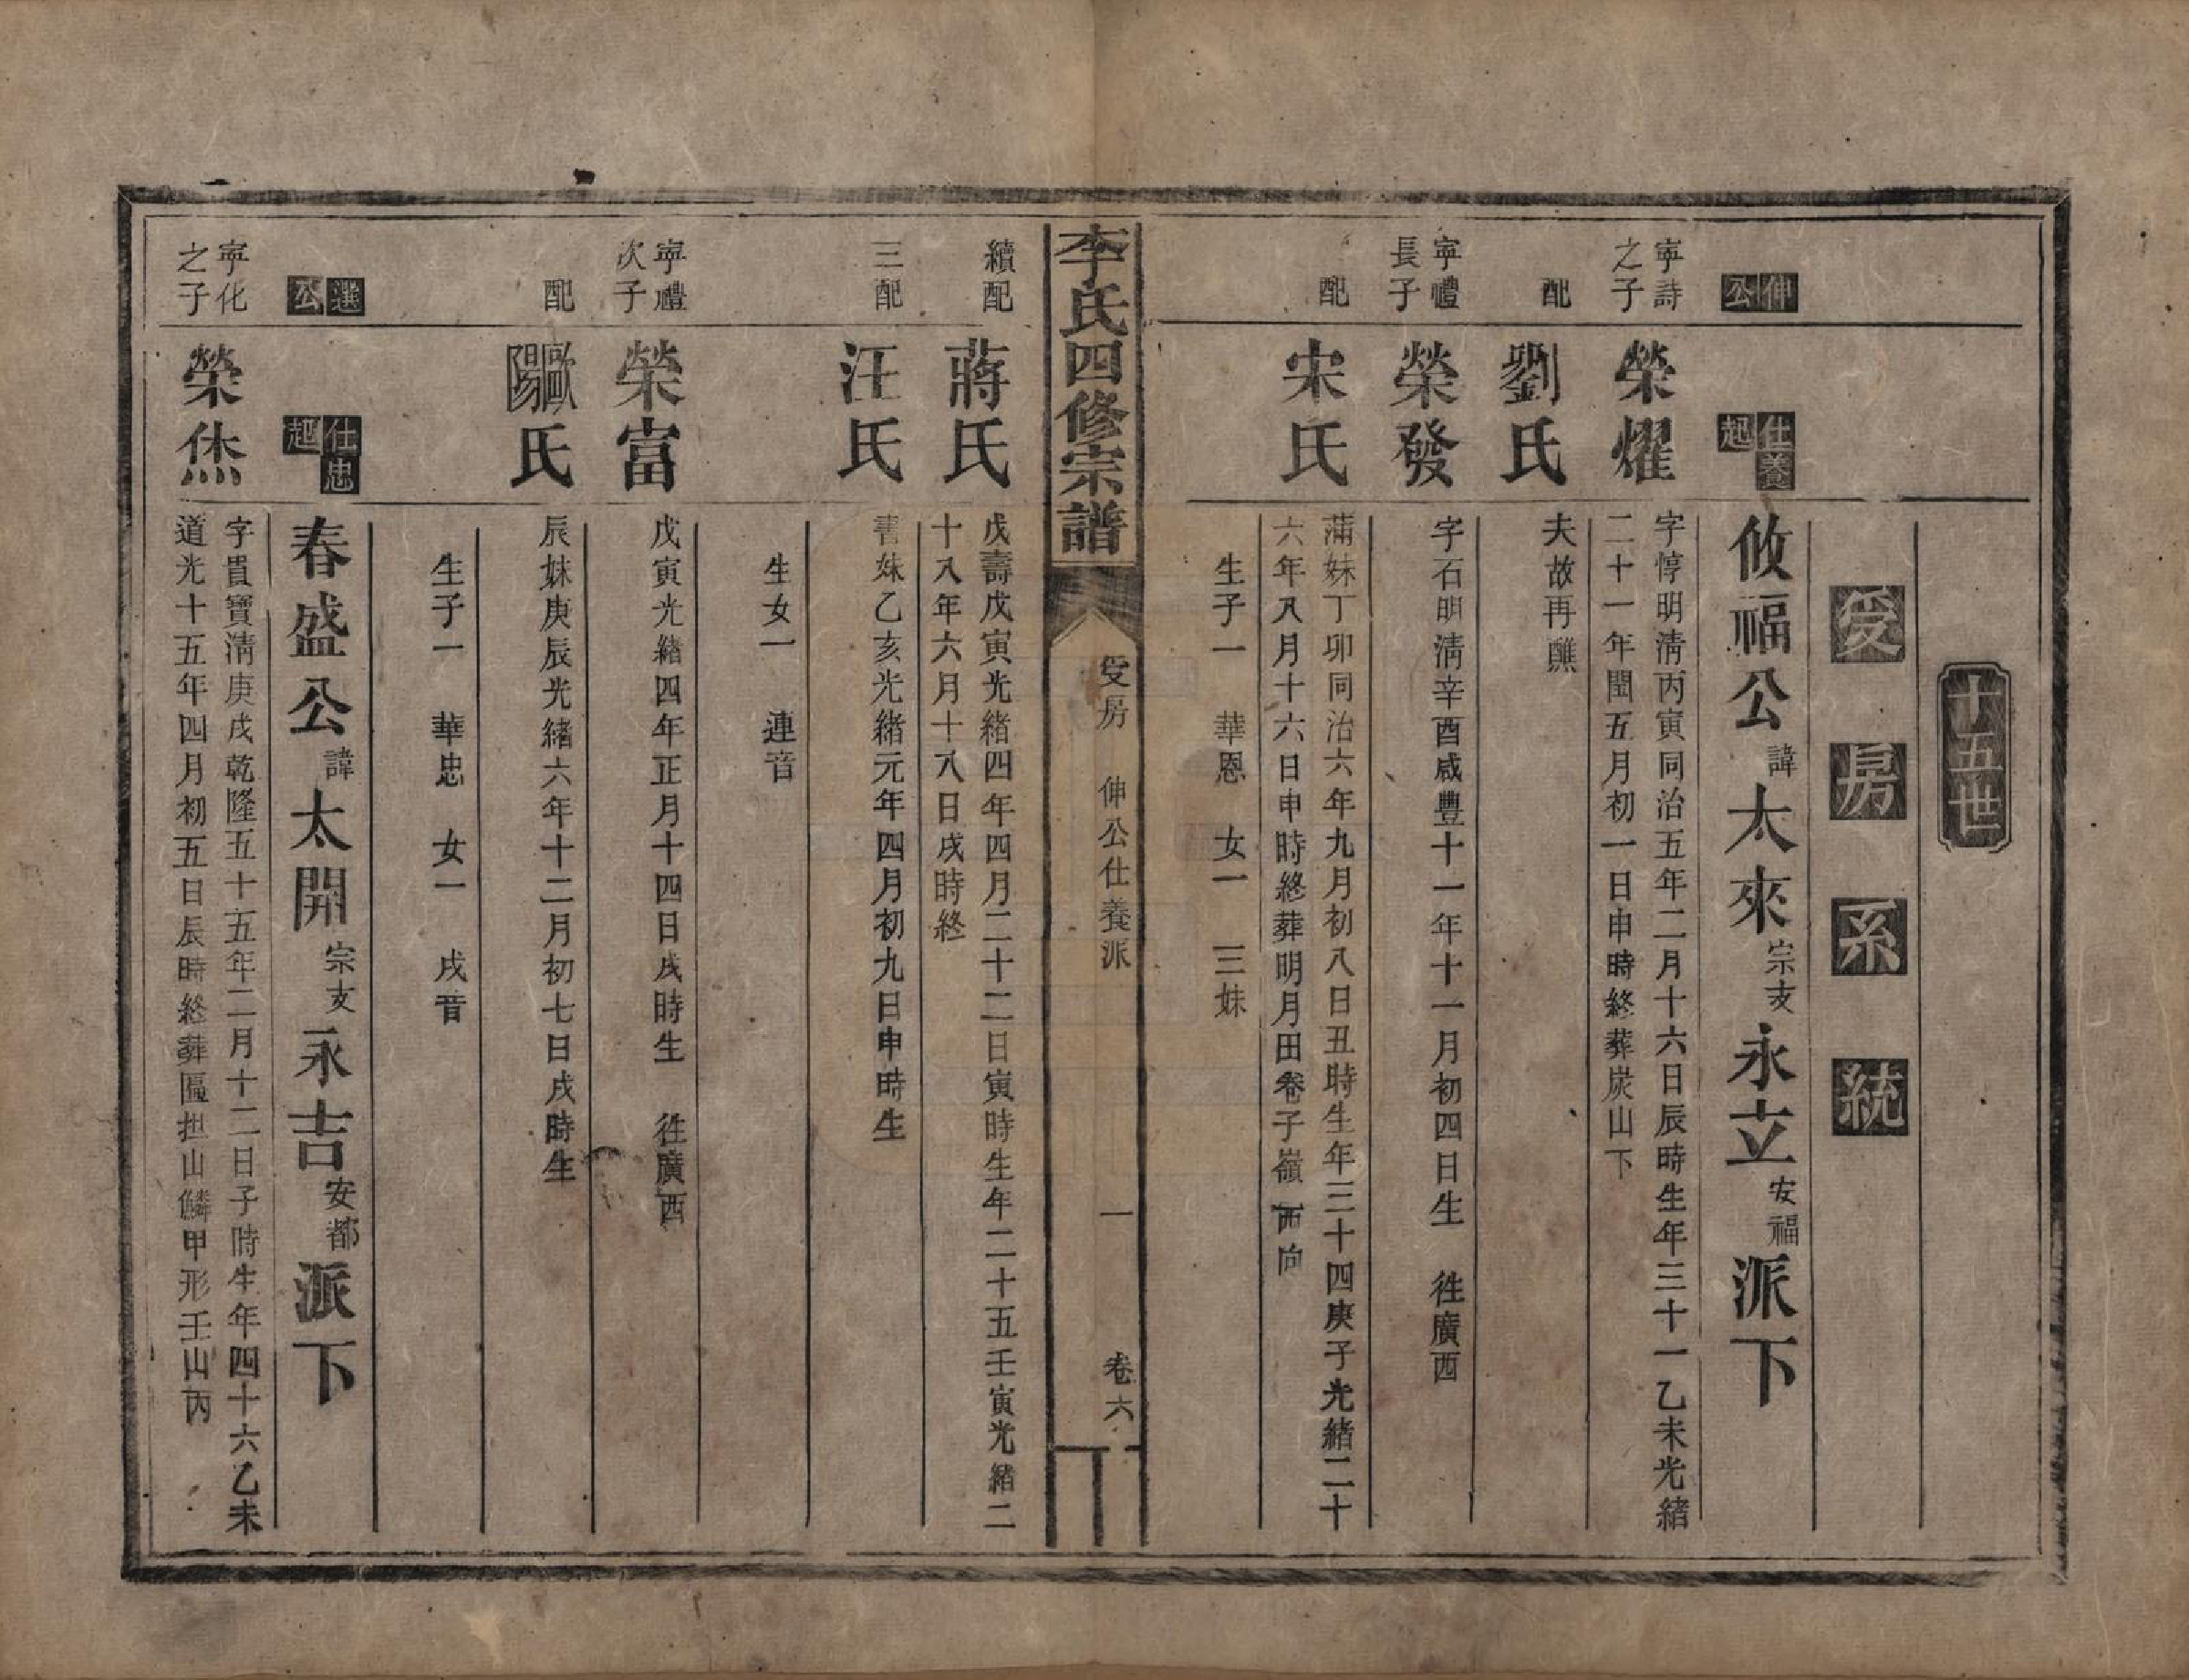 十五世
受房系統
伸公
仕養起
攸福公諱太來宗支永立安福派下
寧詩之子
榮燿
字惇明清丙寅同治五年二月十六日辰時生年三十一乙未光緒
二十一年閏五月初一日申時終葬炭山下
配
劉氏
夫故再醮
寧禮長子
榮發
字石明清辛酉咸豐十一年十一月初四日生 往廣西
配
宋氏
蒲妹丁卯同治六年九月初八日丑時生年三十四庚子光緒二十
六年八月十六日申時終葬明月田卷子嶺西向
生子一 華恩 女一 三妹
李氏四修宗譜
受房 伸公仕養派 一 卷六
續配
蔣氏
戊壽戊寅光緒四年四月二十二日寅時生年二十五壬寅光緒二
十八年六月十八日戌時終
三配
汪氏
書妹乙亥光緒元年四月初九日申時生
生女一 連音
寧禮次子
榮富
戊寅光緒四年正月十四日戌時生 往廣西
配
歐陽氏
辰妹庚辰光緒六年十二月初七日戌時生
生子一 華忠 女一 戌音
選公
仕忠起
春盛公諱太開宗支永吉安都派下
寧化之子
榮烋
字貴寶清庚戌乾隆五十五年二月十二日子時生年四十六乙未
道光十五年四月初五日辰時終葬區担山鱗甲形壬山丙